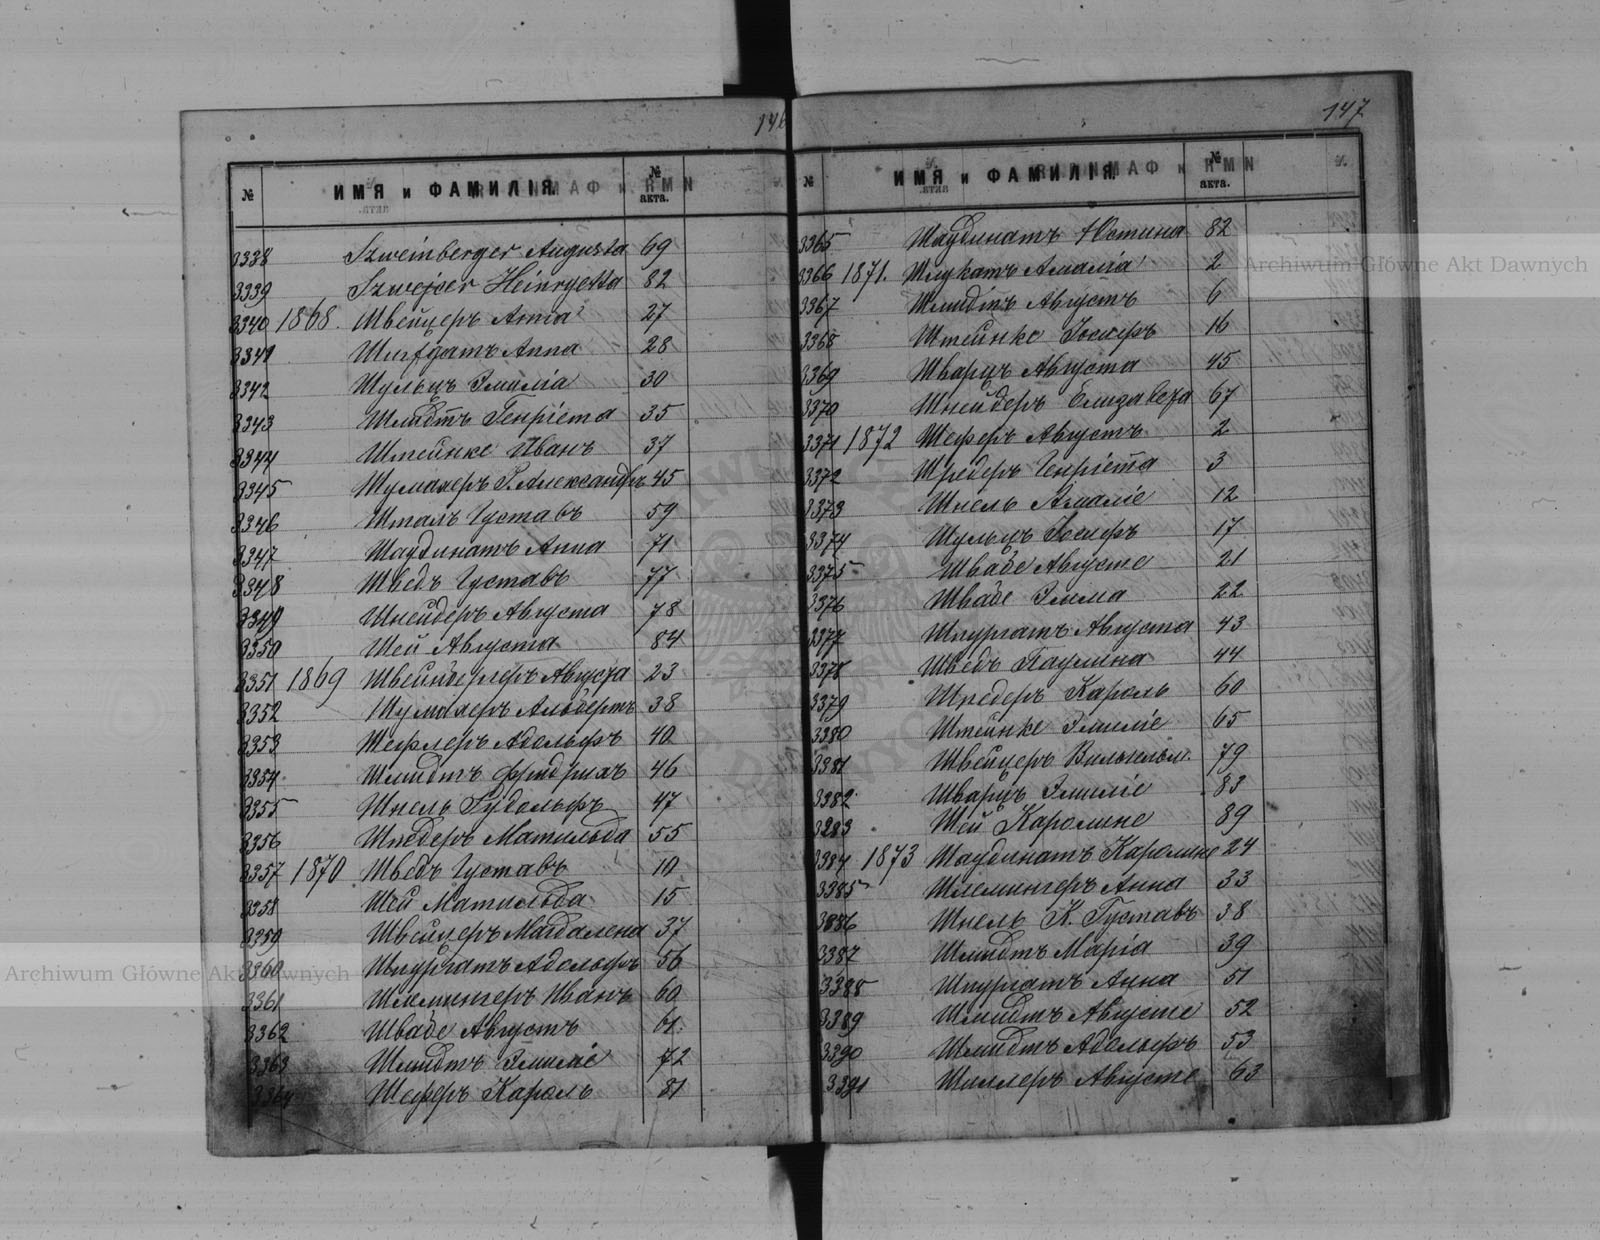 146
№ ИМЯ и ФАМИЛІЯ № акта.
3338 Szweinberger Augusta 69
3339 Szwejcer Heinryetta 82
3340 1868. Швейцеръ Анна 27
3341 Анна 28
3342 Шульцъ Эмилія 30
3343 Шмидтъ Генріета 35
3344 Штейнке Иванъ 37
3345 Шумахеръ Г. Александръ 45
3346 Шталь Густавъ 59
3347 Шаудинатъ Анна 71
3348 Шведъ Густавъ 77
3349 Шнейдеръ Августа 78
3350 Шей Августа 84
3351 1869 Швейнбергеръ Августа 23
3352 Шумахеръ Альбертъ 38
3353 Шефлеръ Адольфъ 40
3354 Шмидтъ Фридрихъ 46
3355 Шнель Рудольфъ 47
3356 Шредеръ Матильда 55
3357 1870 Шведъ Густавъ 10
3358 Шей Матильда 15
3359 Швейцеръ Магдалена 37
3360 Шпургатъ Адольфъ 56
3361 Шлемингеръ Иванъ 60
3362 Швабе Августъ 61
3363 Шмидтъ Эмиліе 72
3364 Шеферъ Кароль 81
147
№ ИМЯ и ФАМИЛІЯ № акта.
3365 Шаудинатъ Юстина 82
3366 1871. Амалія 2
3367 Шмидтъ Августъ 6
3368 Штейнке Іосифъ 16
3369 Шварцъ Августа 45
3370 Шнейдеръ Елизавета 67
3371 1872 Шеферъ Августъ 2
3372 Шредеръ Генріета 3
3373 Шнель Амаліе 12
3374 Шульцъ Іосифъ 17
3375 Швабе Августе 21
3376 Швабе Эмма 22
3377 Шпургатъ Августа 43
3378 Шведъ Паулина 44
3379 Шредеръ Кароль 60
3380 Штейнке Эмиліе 65
3381 Швейцеръ Вильгельм. 79
3382 Шварцъ Эмиліе 83
3283 Шей Каролине 89
3384 1873 Шаудинатъ Каролине 24
3385 Шлемингеръ Анна 33
3386 Шнель К. Густавъ 38
3387 Шмидтъ Марія 39
3388 Шпургатъ Анна 51
3389 Шмидтъ Августе 52
3390 Шмидтъ Адольфъ 53
3391 Шиллеръ Августе 63
Archiwum Główne Akt Dawnych
Archiwum Główne Akt Dawnych